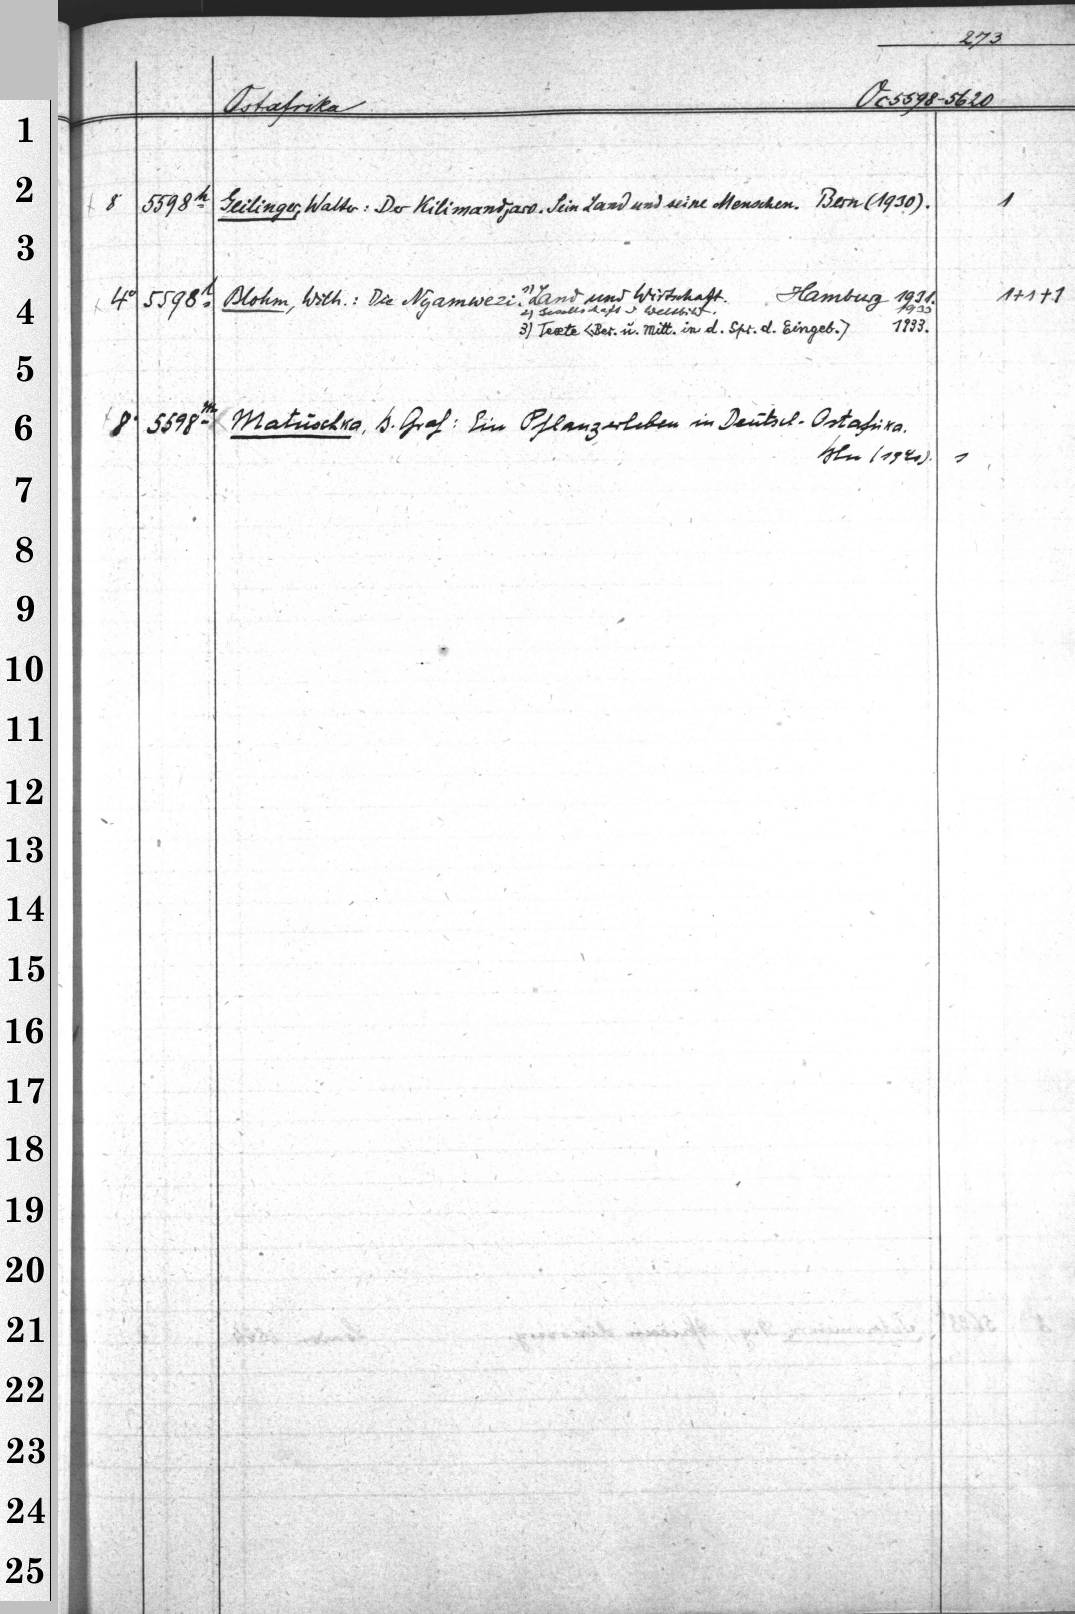 273
Ostafrika Oc 5598-5620
1
2
8 5598h Geilinger, Walter: Der Kilimandjaro. Sein Land und seine Menschen. Bern (1930). 1
3
4° 5598l Blohm, Wilh.: Die Nyamwezi. 1) Land und Wirtschaft. Hamburg 1931. 1+1+1
4
2) Gesellschaft u Weltbild. 1933
3) Texte <Ber. u. Mitt. in d. Spr. d. Eingeb.> 1933.
5
6
8° 5598m Matuschka, Graf: Ein Pflanzerleben in Deutsch-Ostafrika.
Bln (1941). 1
7
8
9
10
11
12
13
14
15
16
17
18
19
20
21
22
23
24
25